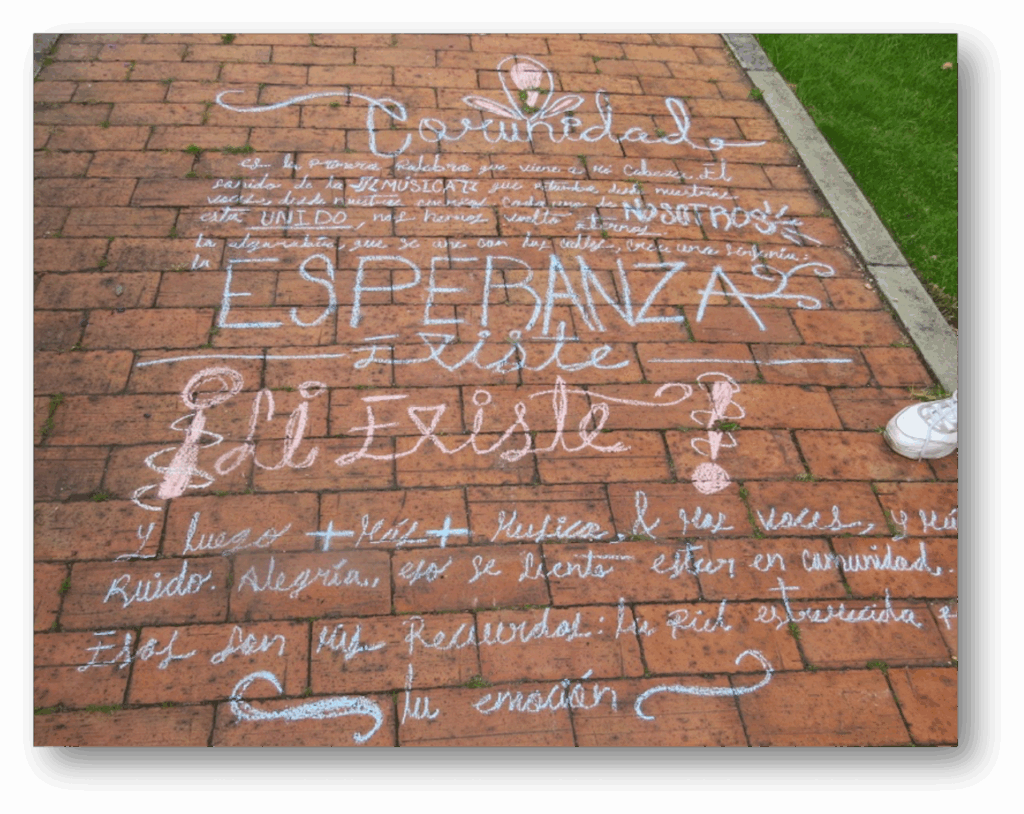 Comunidad
es la primera palabra que viene a mi cabeza. El
sonido de la MÚSICA que retumba desde nuestras
voces, desde nuestros cada uno de NOSOTROS
está UNIDO, nos hemos vuelto eternos
la algarabía que se une con las calles, crea una sinfonía:
la
ESPERANZA
Existe
¡Sí Existe!
Y luego + Más + Música, & Más voces, y Má
Ruido. Alegría, eso se siente estar en comunidad.
Esos son mis Recuerdos: la piel estremecida
la emoción